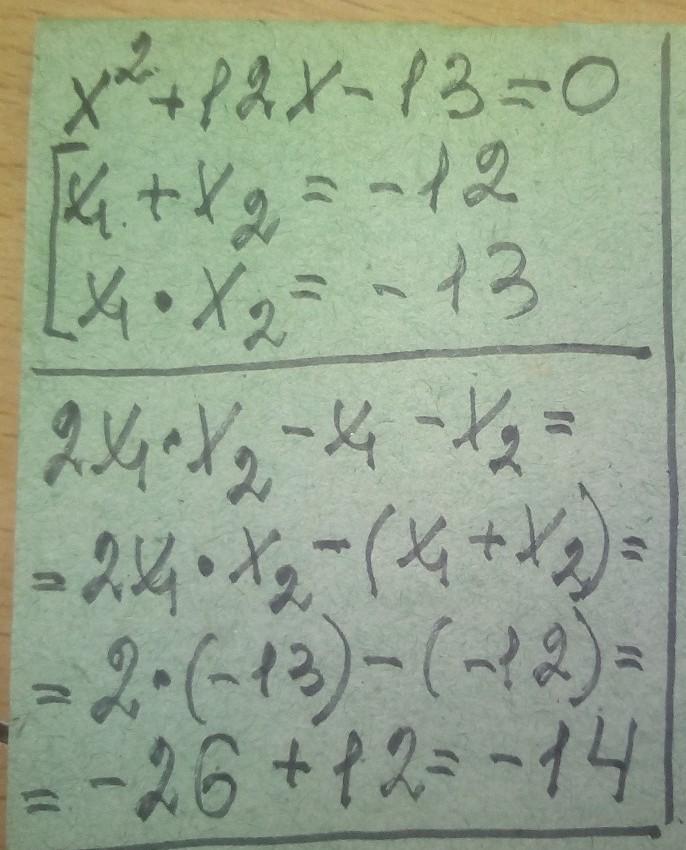 x² + 12x - 13 = 0
x₁ + x₂ = -12
x₁ · x₂ = -13
2x₁ · x₂ - x₁ - x₂ =
= 2x₁ · x₂ - (x₁ + x₂) =
= 2 · (-13) - (-12) =
= -26 + 12 = -14